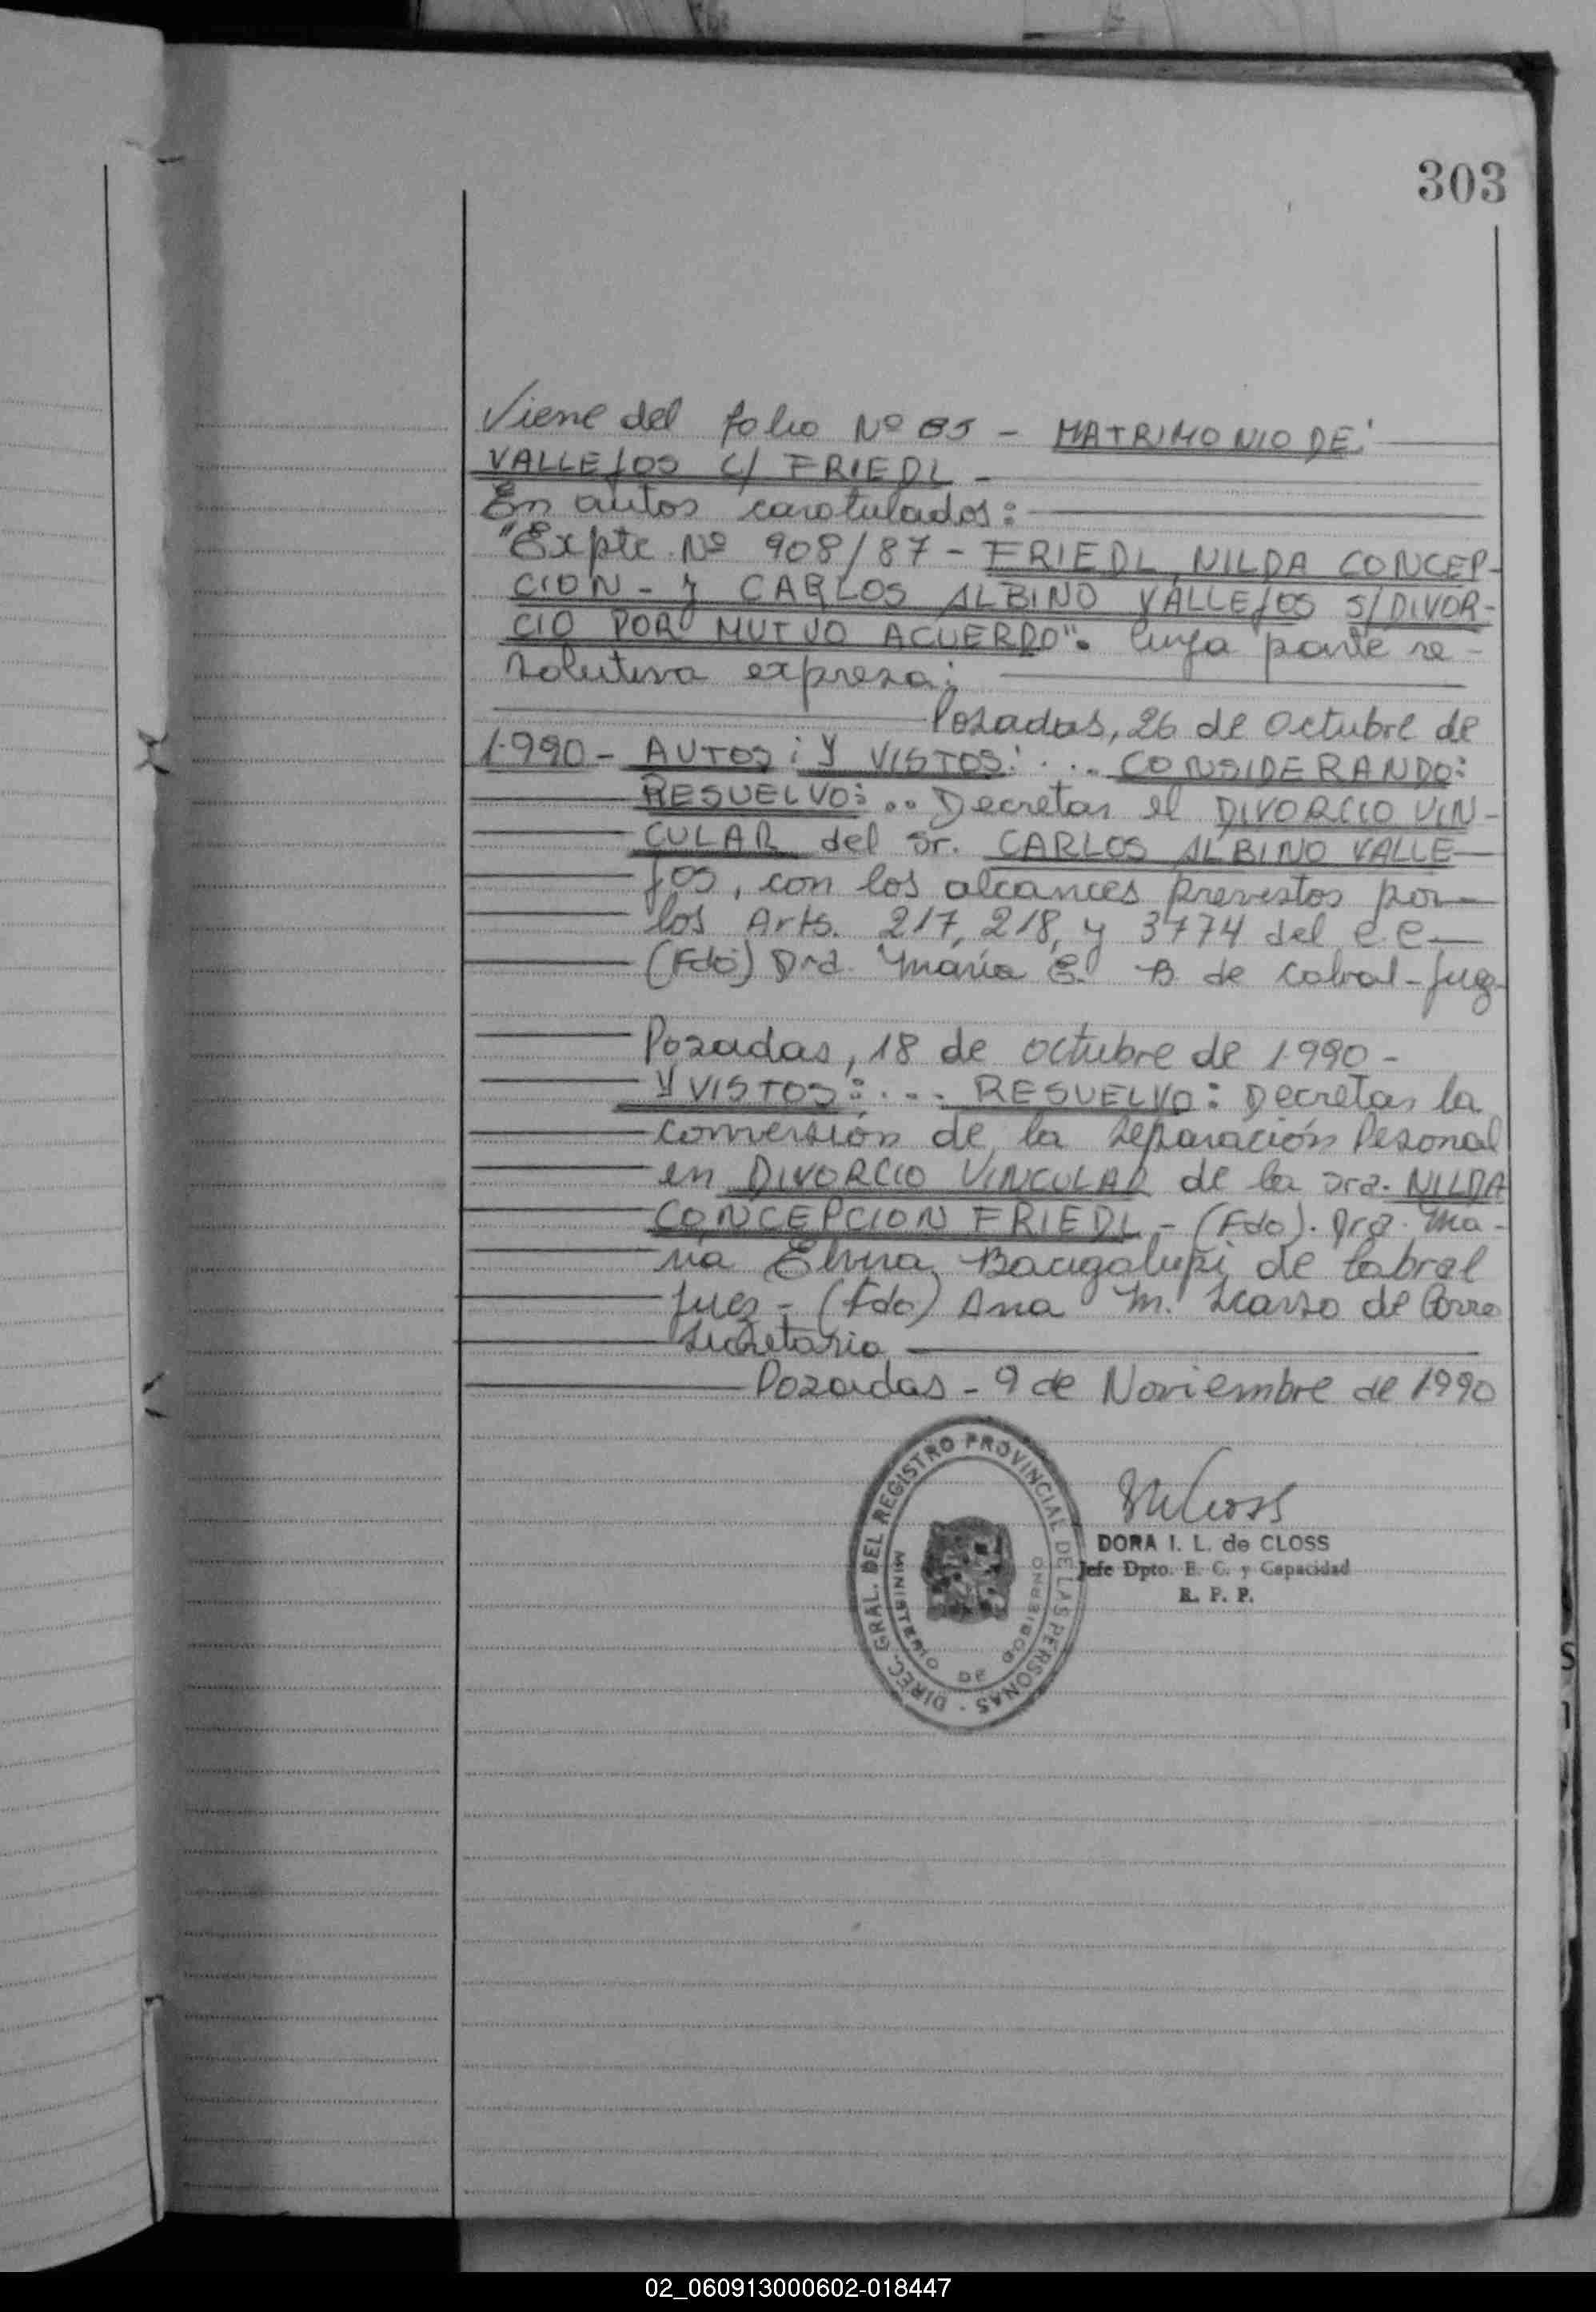 303
Viene del folio Nº 85 - MATRIMONIO DE:
VALLEJOS C/ FRIEDL -
En autos carotulados:
"Expte. Nº 908/87 - FRIEDL, NILDA CONCEP-
CION - y CARLOS ALBINO VALLEJOS S/DIVOR-
CIO POR MUTUO ACUERDO". Cuya parte re-
solutiva expresa:
Posadas, 26 de Octubre de
1.990 - AUTOS: Y VISTOS: ... CONSIDERANDO:
RESUELVO: .. Decretar el DIVORCIO VIN-
CULAR del Sr. CARLOS ALBINO VALLE
jos, con los alcances previstos por
los Arts. 217, 218, y 3774 del C.C.
(Fdo) Dra. María E. B de Cabral - Juez
Posadas, 18 de octubre de 1.990 -
Y VISTOS: ... RESUELVO: Decretar la
conversión de la Separación Pesonal
en DIVORCIO VINCULAR de la Sra. NILDA
CONCEPCION FRIEDL - (Fdo). Dra. Ma-
ría Elvira Bacigalupi de Cabral
Juez - (Fdo) Ana M. de
Secretaria
Posadas - 9 de Noviembre de 1990
DIREC. GRAL. DEL REGISTRO PROVINCIAL DE LAS PERSONAS -
MINISTERIO DE GOBIERNO
DORA I. L. de CLOSS
Jefe Dpto. E. C. y Capacidad
R. P. P.
02_060913000602-018447